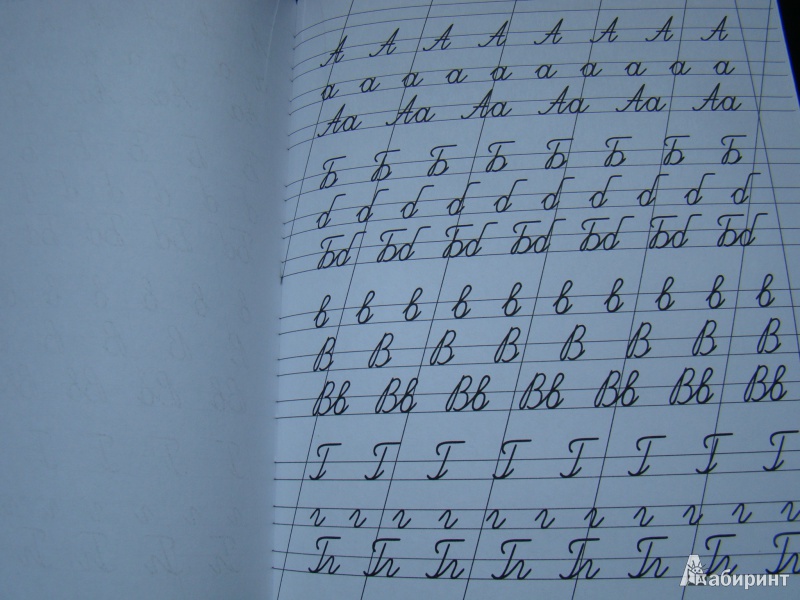 А А А А А А А А
а а а а а а а а а а
Аа Аа Аа Аа Аа Аа
Б Б Б Б Б Б Б Б
б б б б б б б б б б
Бб Бб Бб Бб Бб Бб Бб
в в в в в в в в в в
В В В В В В В В
Вв Вв Вв Вв Вв Вв Вв
Г Г Г Г Г Г Г Г
г г г г г г г г г г г
Гг Гг Гг Гг Гг Гг Гг Гг
Лабиринт